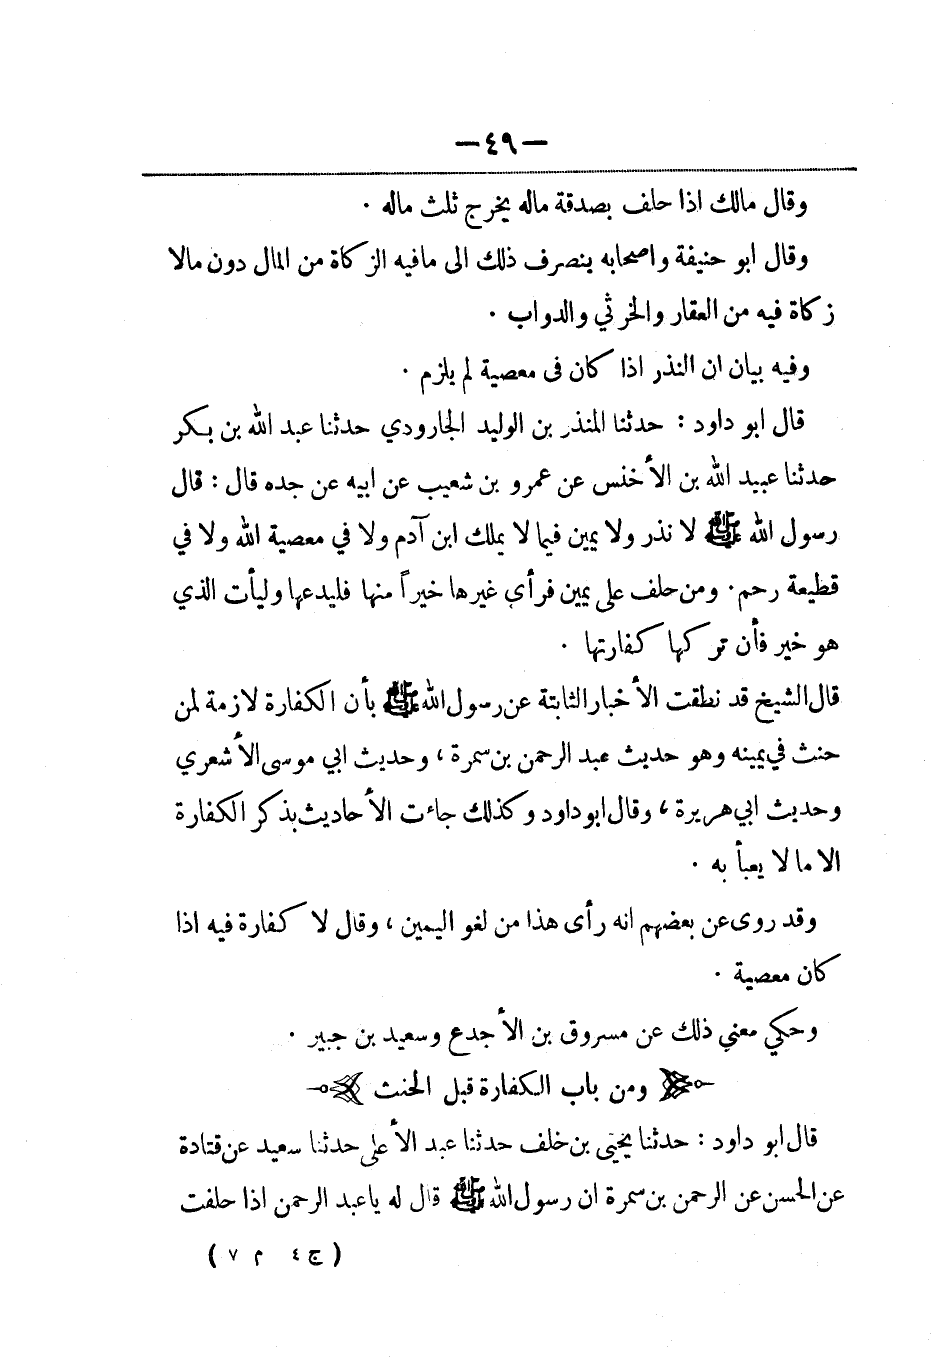 — ٤٩ —
وقال مالك اذا حلف بصدقة ماله يخرج ثلث ماله .
وقال ابو حنيفة واصحابه ينصرف ذلك الى مافيه الزكاة من المال دون مالا
زكاة فيه من العقار والخرثي والدواب .
وفيه بيان ان النذر اذا كان فى معصية لم يلزم .
قال ابو داود : حدثنا المنذر بن الوليد الجارودي حدثنا عبد الله بن بكر
حدثنا عبيد الله بن الأخنس عن عمرو بن شعيب عن ابيه عن جده قال : قال
رسول الله ﷺ لا نذر ولا يمين فيما لا يملك ابن آدم ولا في معصية الله ولا في
قطيعة رحم . ومن حلف على يمين فرأى غيرها خيراً منها فليدعها وليأت الذي
هو خير فأن تركها كفارتها .
قال الشيخ قد نطقت الأخبار الثابتة عن رسول الله ﷺ بأن الكفارة لازمة لمن
حنث في يمينه وهو حديث عبد الرحمن بن سمرة ، وحديث ابي موسى الأشعري
وحديث ابي هريرة ، وقال ابو داود وكذلك جاءت الأحاديث بذكر الكفارة
الا ما لا يعبأ به .
وقد روى عن بعضهم انه رأى هذا من لغو اليمين ، وقال لا كفارة فيه اذا
كان معصية .
وحكي معني ذلك عن مسروق بن الأجدع وسعيد بن جبير .
ومن باب الكفارة قبل الحنث
قال ابو داود : حدثنا يحيى بن خلف حدثنا عبد الأعلى حدثنا سعيد عن قتادة
عن الحسن عن الرحمن بن سمرة ان رسول الله ﷺ قال له يا عبد الرحمن اذا حلفت
( ج ٤ م ٧ )